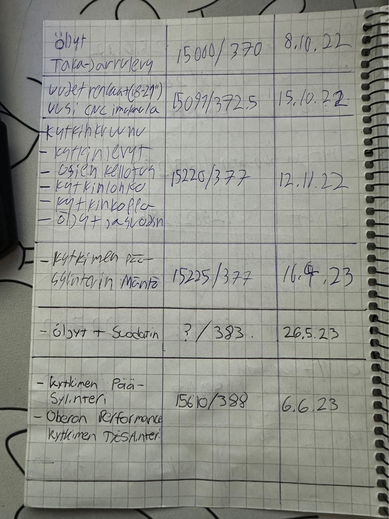 Öljyt
Taka-jarrulevy
15000/370
8.10.22
uudet renkaat (8-29")
uusi cnc imukaula
15099/372.5
15.10.22
kytkinkruunu
- kytkinlevyt
- osien kellotus
- kytkinlohko
- kytkinkoppa
- öljyt ja suodatin
15220/377
12.11.22
- kytkimen pää-
sylinterin mäntä
15225/377
16.4.23
- öljyt + Suodatin
? / 383
26.5.23
- kytkimen Pää-
Sylinteri
- Oberon Performance
kytkimen
15610/388
6.6.23